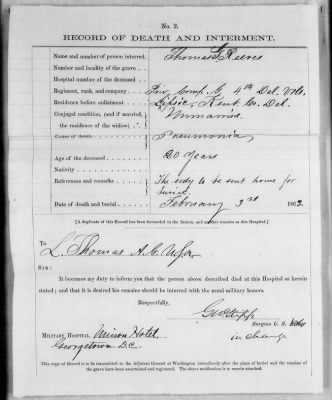 No. 2.
RECORD OF DEATH AND INTERMENT.
Name and number of person interred, Thomas G Reeves
Number and locality of the grave
Hospital number of the deceased
Regiment, rank, and company Priv. Comp. G 4th Del. Vols.
Residence before enlistment Leipsic, Kent Co. Del.
Conjugal condition, (and if married, Unmarried.
the residence of the widow)
Cause of death Pneumonia,
Age of the deceased 20 years
Nativity
References and remarks The body to be sent home for
burial.
Date of death and burial February 3rd 1863.
[A duplicate of this Record has been forwarded to the Sexton, and another remains at this Hospital.]
To
L. Thomas A. G. U.S.A.
SIR:
It becomes my duty to inform you that the person above described died at this Hospital as herein
stated; and that it is desired his remains should be interred with the usual military honors.
Respectfully,
Surgeon U. S.
in charge
MILITARY HOSPITAL, Union Hotel,
Georgetown D.C.
This copy of Record is to be transmitted to the Adjutant General at Washington immediately after the place of burial and the number of
the grave have been ascertained and registered. The above notification is to remain attached.